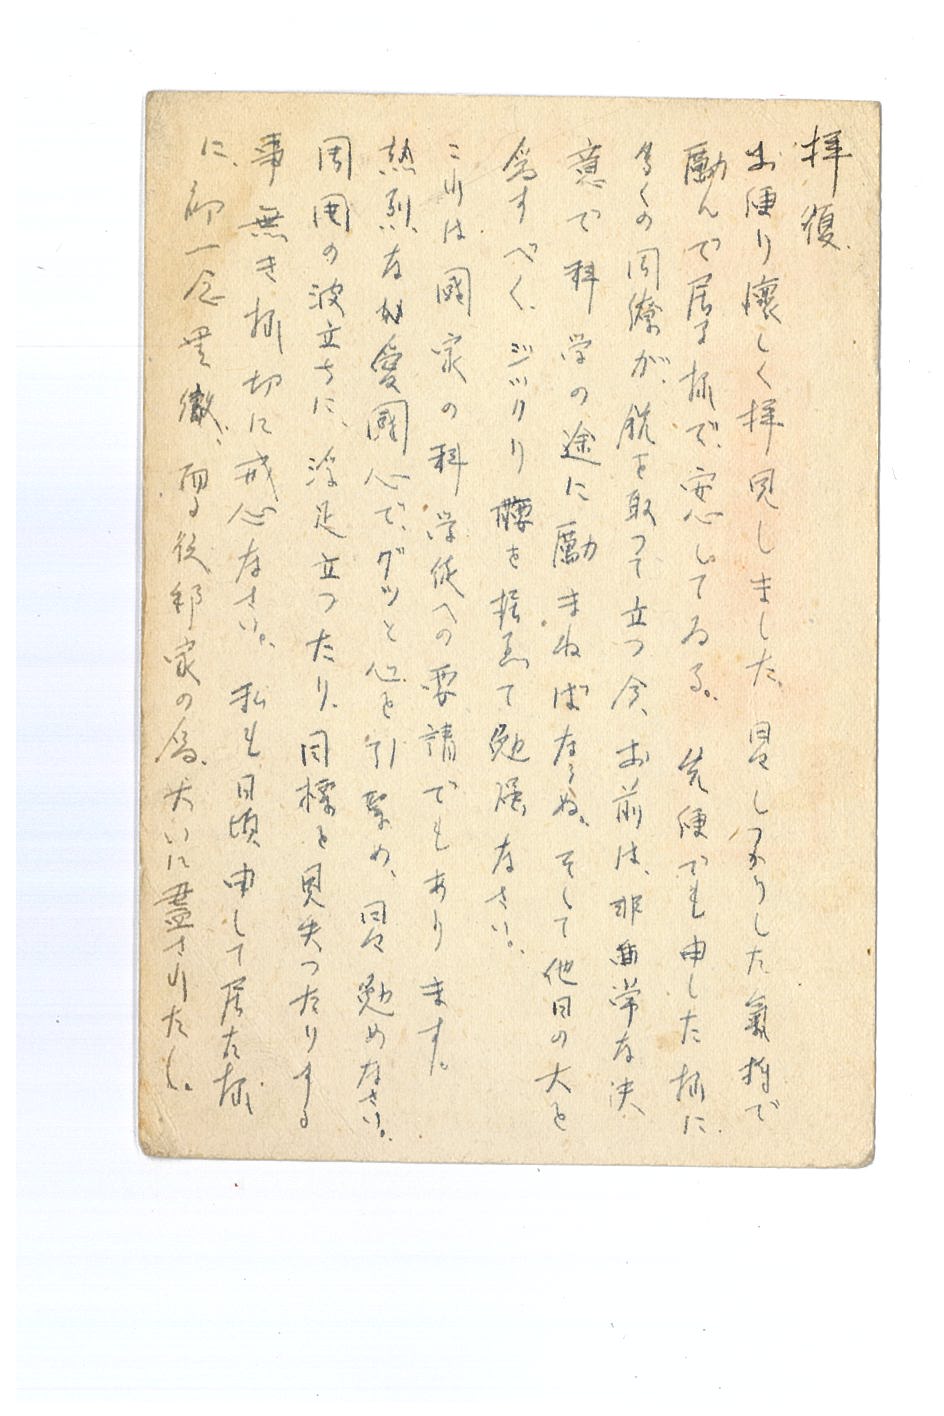 拝復
お便り懐しく拝見しました、日々しつかりした氣持で
勵んで居る様で、安心してゐる。先便でも申した様に
多くの同僚が、銃を取つて立つ今、お前は、非常な決
意で科学の途に勵まねばならぬ。そして他日の大を
為すべく、ジツクリ腰を据ゑて勉强なさい。
これは國家の科学徒への要請でもあります。
熱烈な愛國心で、グツと心を引緊め、日々勉めなさい。
周囲の波立ちに、浮足立つたり、目標を見失つたりする
事無き様切に戒心なさい。私も日頃申して居た様
に、初一念貫徹、而る後邦家の為、大いに盡されたし。